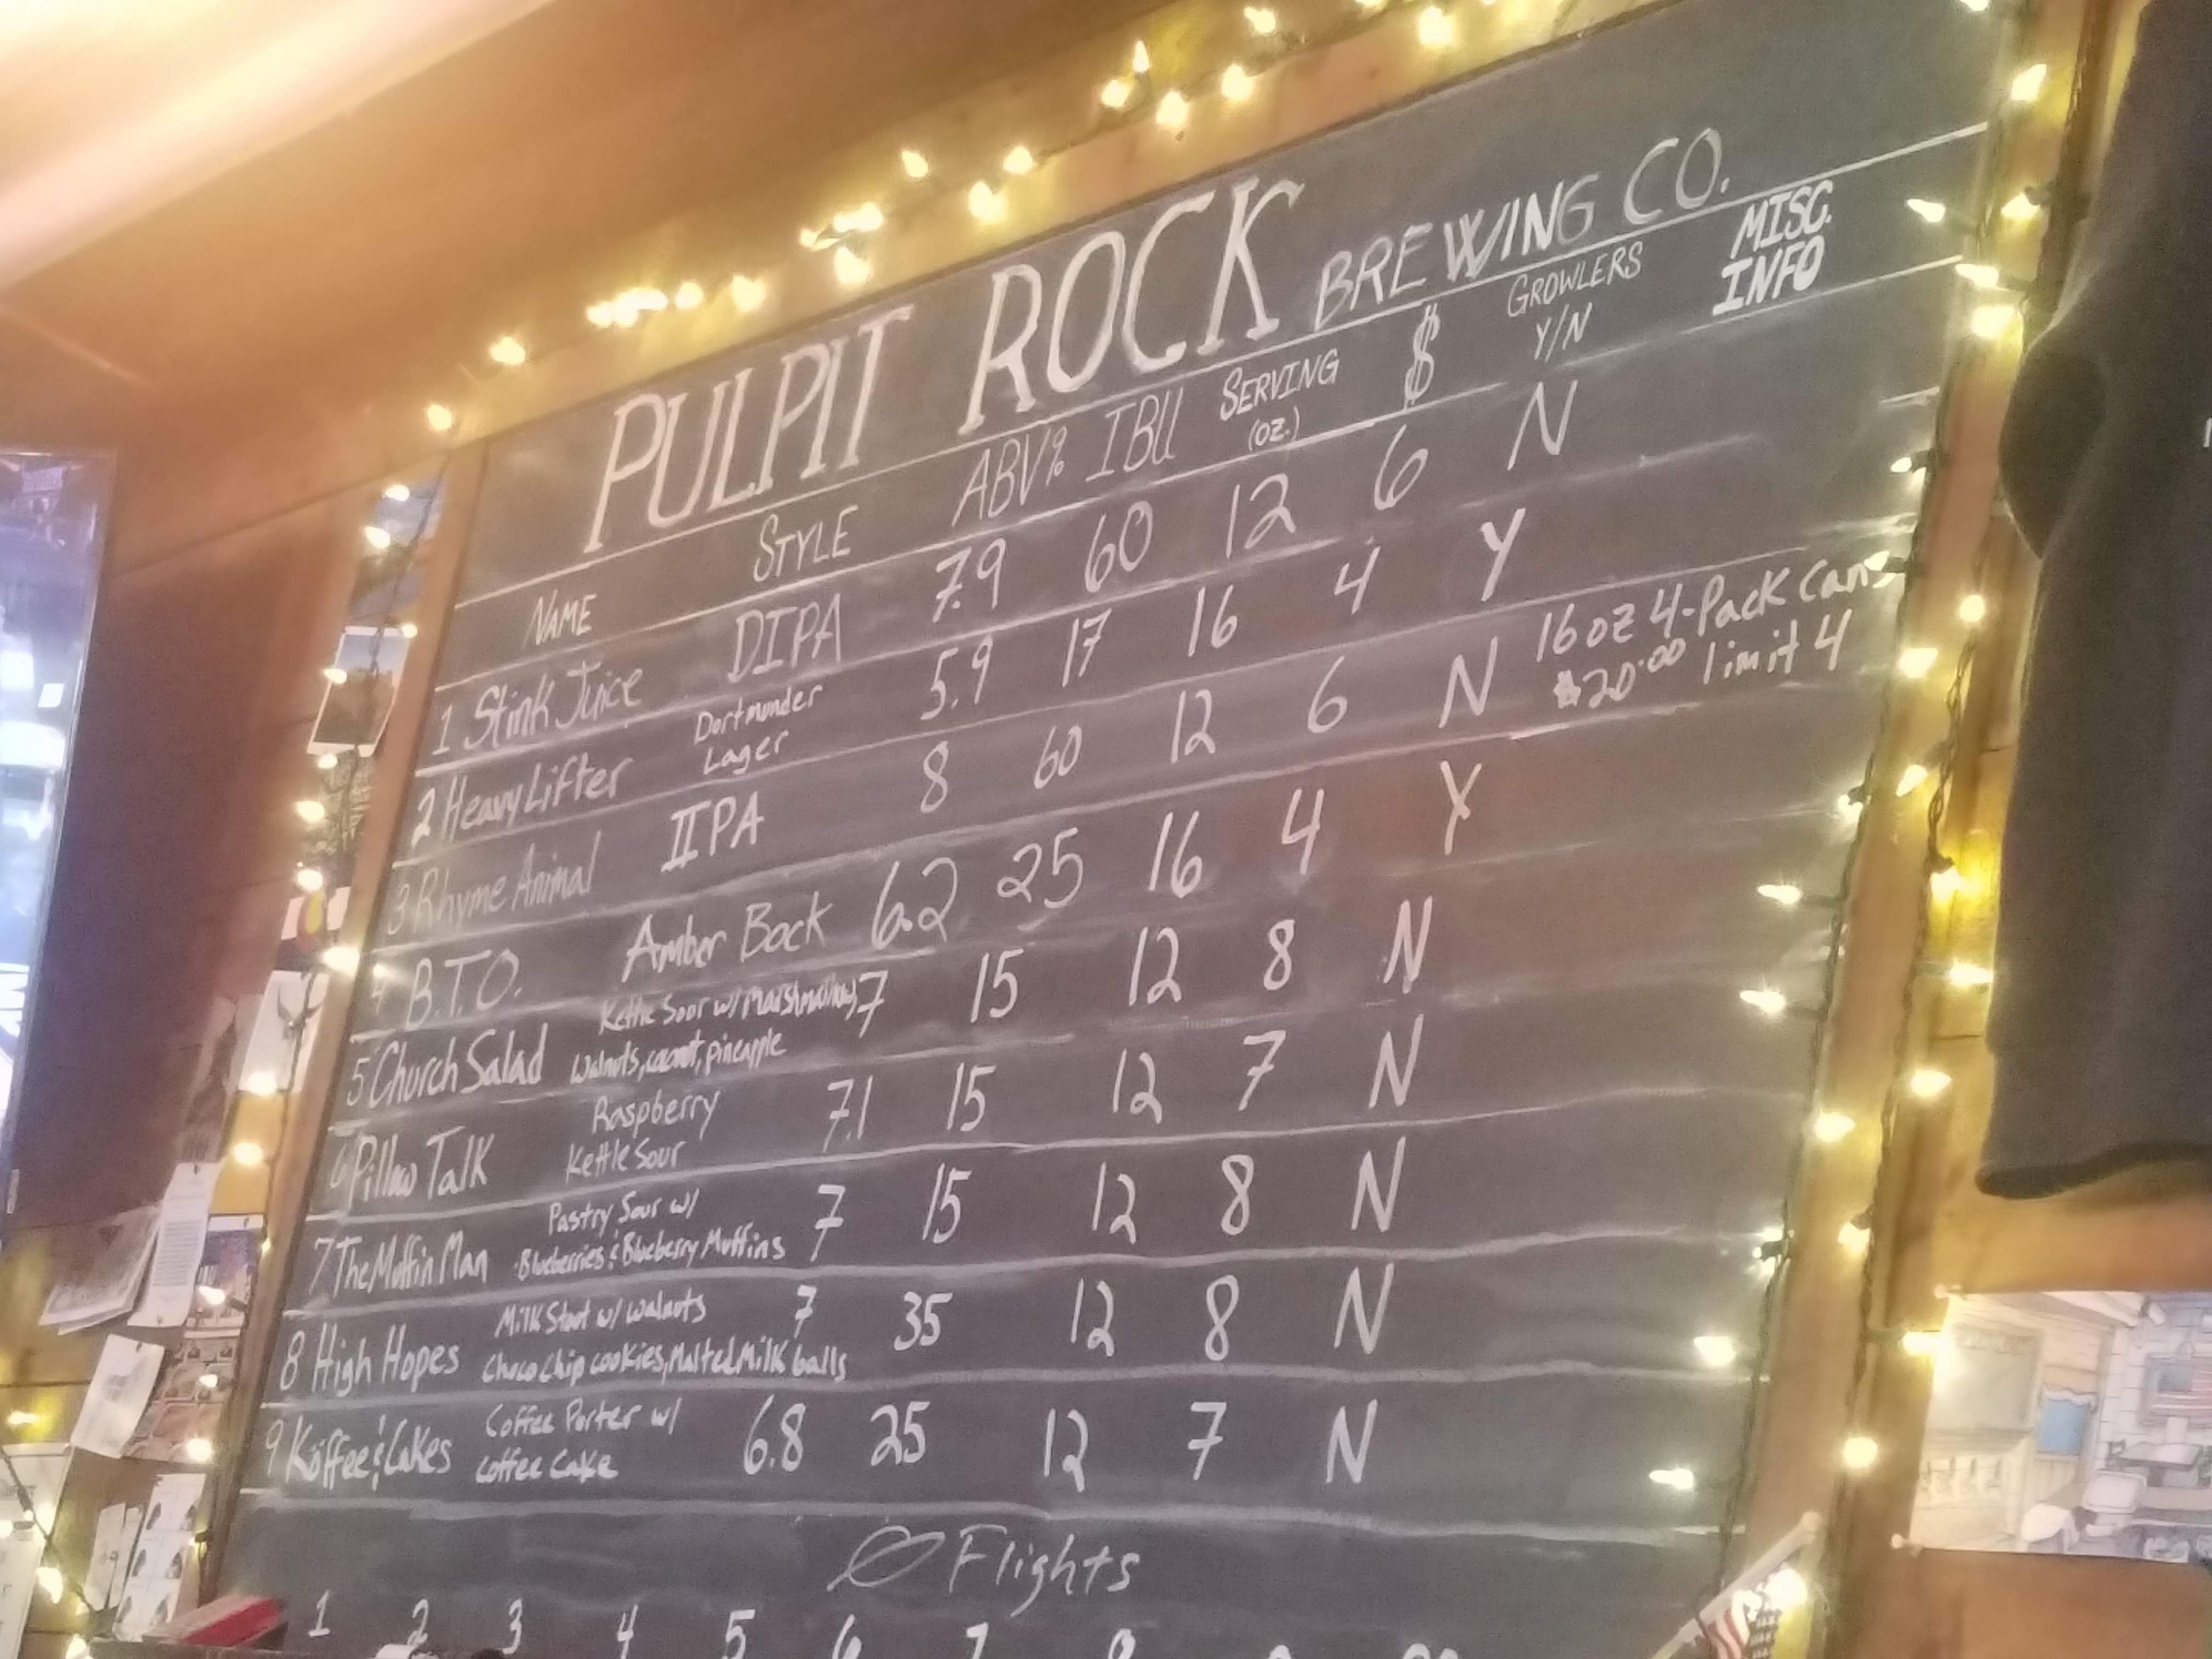 PULPIT ROCK BREWING CO.
NAME STYLE ABV% IBU SERVING (OZ.) $ GROWLERS Y/N MISC. INFO
1 Stink Juice DIPA 7.9 60 12 6 N
2 Heavy Lifter Dortmunder Lager 5.9 17 16 4 Y
3 Rhyme Animal IIPA 8 60 12 6 N 16 oz 4-Pack Cans
$20.00 limit 4
4 B.T.O. Amber Bock 6.2 25 16 4 Y
5 Church Salad Kettle Sour w/ Marshmallow, 7 15 12 8 N
Walnuts, coconut, pineapple
6 Pillow Talk Raspberry Kettle Sour 7.1 15 12 7 N
7 The Muffin Man Pastry Sour w/ 7 15 12 8 N
Blueberries & Blueberry Muffins
8 High Hopes Milk Stout w/ walnuts 7 35 12 8 N
Choco Chip cookies, Malted Milk balls
9 Köffee & Cakes Coffee Porter w/ 6.8 25 12 7 N
coffee cake
Ø Flights
1 2 3 4 5 6 7